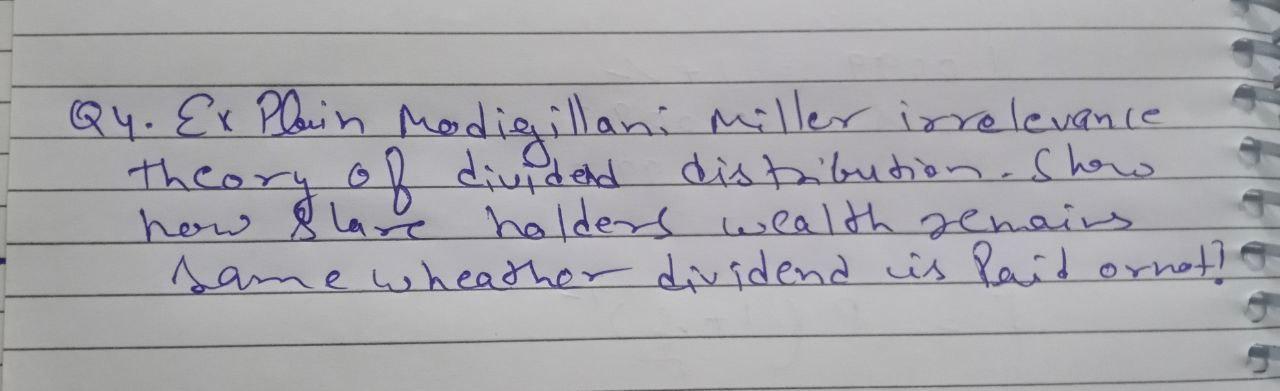 Q4. Explain Modigillani Miller irrelevance
theory of dividend distribution. Show
how share holders wealth remains
same wheather dividend is Paid or not?